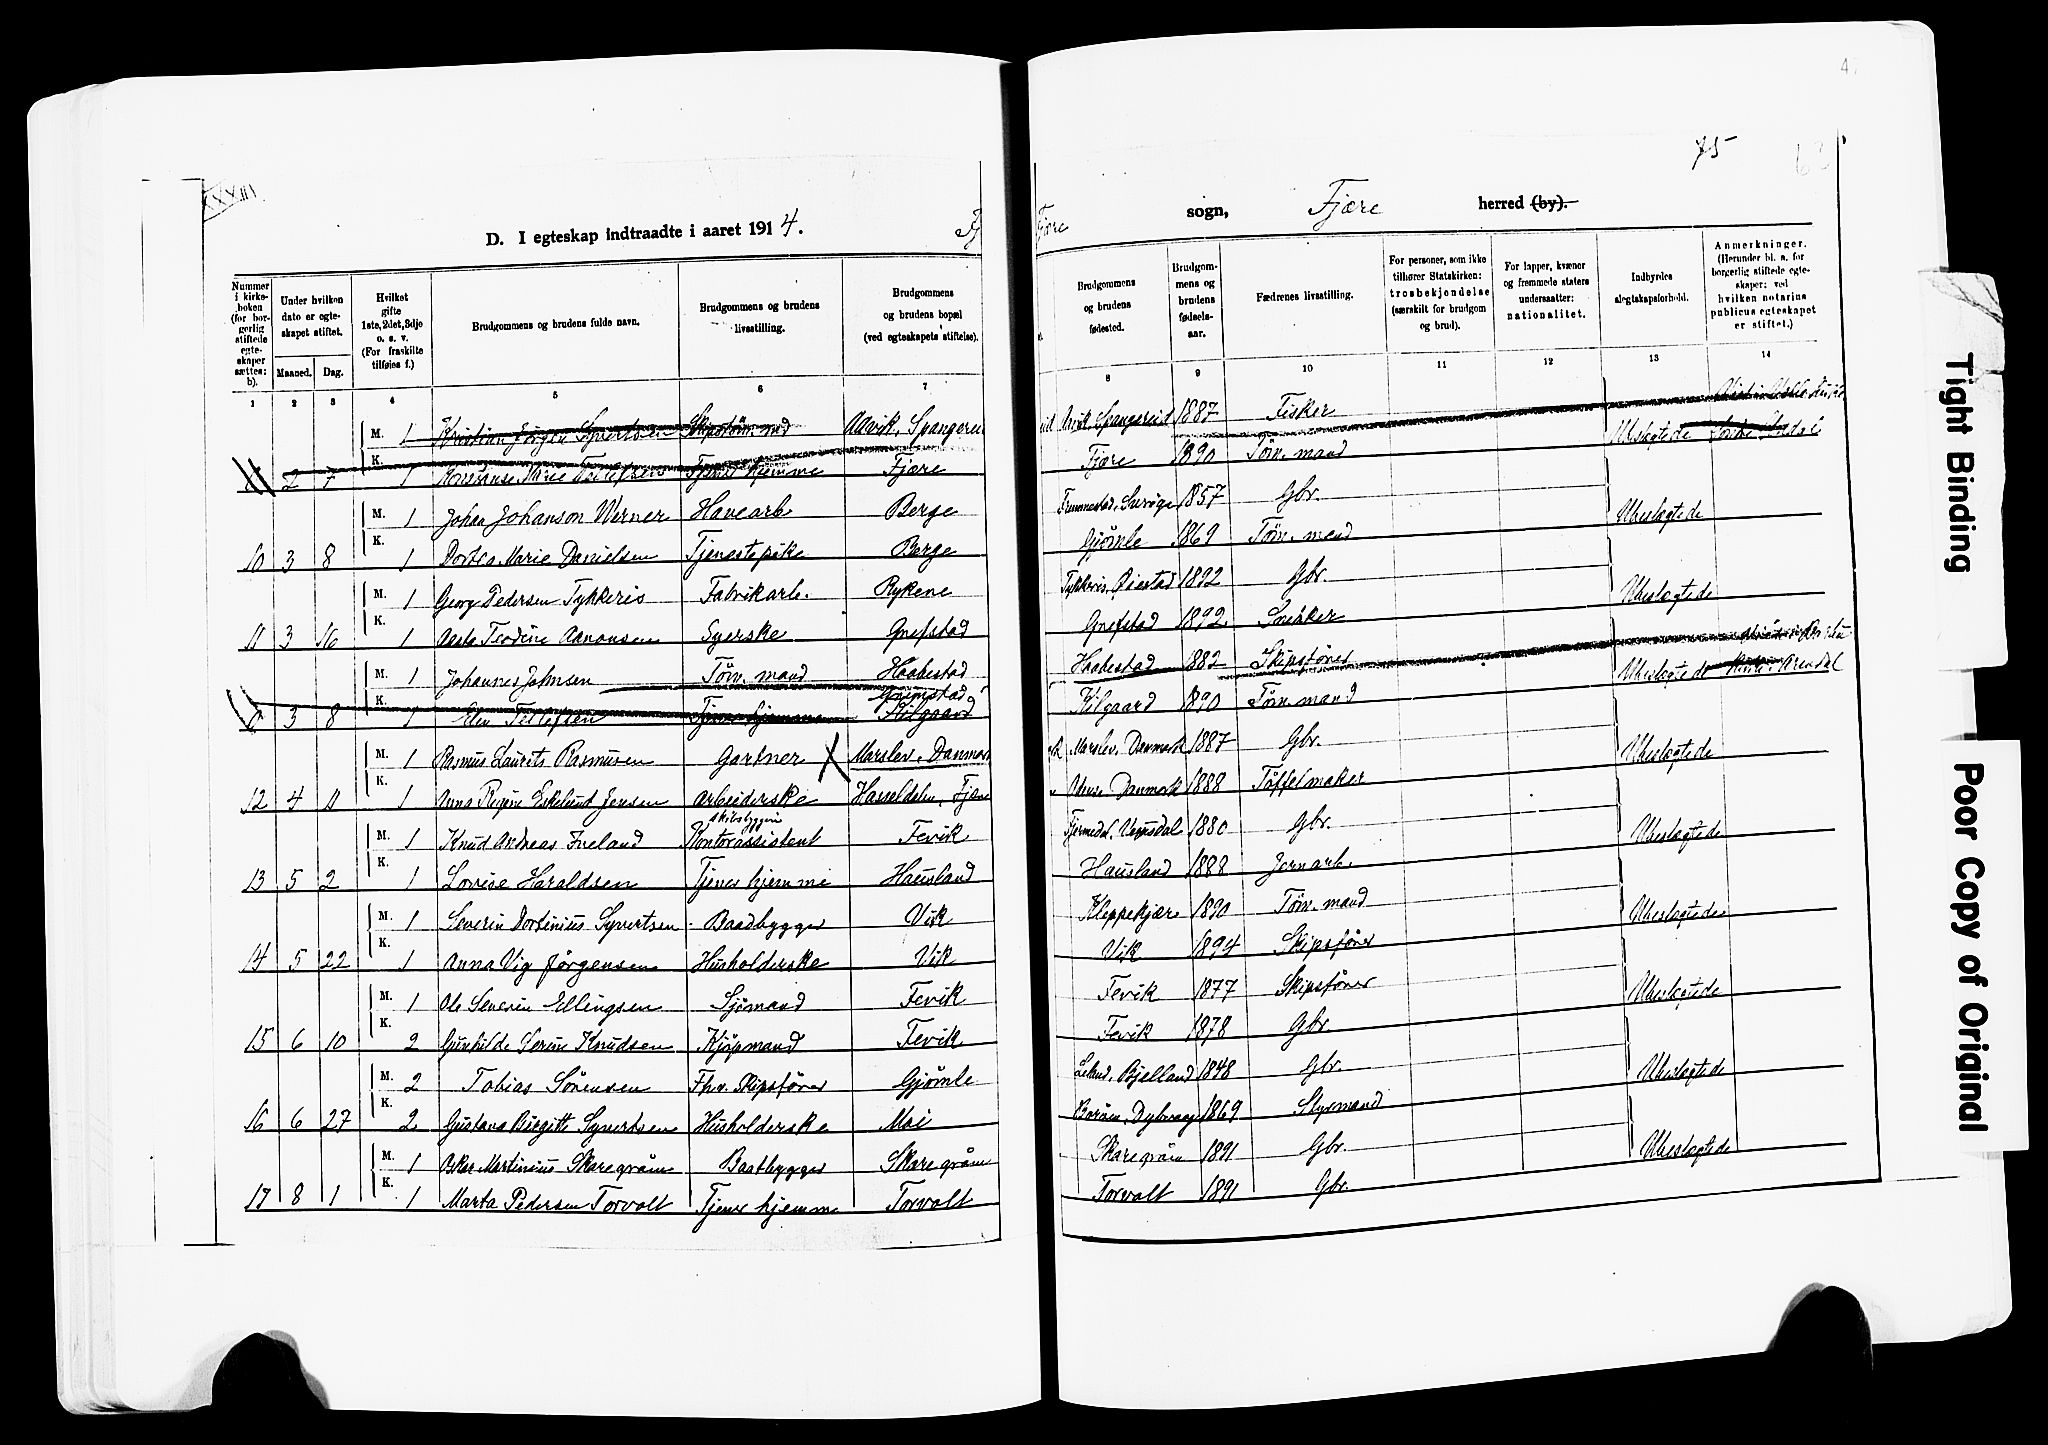 47
75
63
XXXIII
D. I egteskap indtraadte i aaret 1914. Fj
Fjære sogn, Fjære herred (by).
Nummer i kirkeboken (for borgerlig stiftede egteskaper sættes: b).
Under hvilken dato er egteskapet stiftet.
Maaned. Dag.
Hvilket gifte 1ste, 2det, 3dje o. s. v. (For fraskilte tilføies f.)
Brudgommens og brudens fulde navn.
Brudgommens og brudens livsstilling.
Brudgommens og brudens bopæl (ved egteskapets stiftelse).
Brudgommens og brudens fødested.
Brudgommens og brudens fødselsaar.
Fædrenes livsstilling.
For personer, som ikke tilhører Statskirken: trosbekjendelse (særskilt for brudgom og brud).
For lapper, kvæner og fremmede staters undersaatter: nationalitet.
Indbyrdes slegtskapsforhold.
Anmerkninger. (Herunder bl. a. for borgerlig stiftede egteskaper: ved hvilken notarius publicus egteskapet er stiftet.)
1 2 3 4 5 6 7 8 9 10 11 12 13 14
M. 1 Kristian Jörgen Syvertsen Aavik, Spangereid 1887 Fisker
K. 2 7 1 Marie Tjener hjemme Fjære Fjære 1890 Töm. mand Ubeslegtede
M. 1 Johan Johanson Werner Havearb Berge 1857 Gbr.
K. 10 3 8 1 Dortea Marie Danielsen Tjenestepike Berge Gjömle 1869 Töm. mand Ubeslegtede
M. 1 Georg Pedersen Tykkeris Fabrikarb. Rykene Tykkeris, Øiestad 1892 Gbr.
K. 11 3 16 1 Aasta Teodine Aanonsen Syerske Grefstad Grefstad 1892 Snekker Ubeslegtede
M. 1 Johannes Johnsen Töm. mand Haabestad Haabestad 1882 Skipsförer
K. 3 8 1 Tjener hjemme Grimstad Kilgaard Kilgaard 1890 Töm. mand Ubeslegtede Arendal
M. 1 Rasmus Laurits Rasmusen Gartner X Marslev, Danmark Marslev, Danmark 1887 Gbr.
K. 12 4 11 1 Anna Regine Eskelund Jensen Arbeiderske Hasseldalen, Fjære Danmark 1888 Töffelmaker Ubeslegtede
M. 1 Knud Andreas Kontorassistent skibsbyggeri Fevik 1880 Gbr.
K. 13 5 2 1 Lovise Haraldsen Tjener hjemme Hausland Hausland 1888 Jernarb. Ubeslegtede
M. 1 Severin Dortinius Syvertsen Baadbygger Vik Kleppekjær 1890 Töm. mand
K. 14 5 22 1 Anna Vig Jörgensen Husholderske Vik Vik 1894 Skipsförer Ubeslegtede
M. 1 Ole Severin Ellingsen Sjömand Fevik Fevik 1877 Skipsförer
K. 15 6 10 2 Gunhilde Serine Knudsen Kjöpmand Fevik Fevik 1878 Gbr. Ubeslegtede
M. 2 Tobias Sörensen Fhv. Skipsförer Gjömle Bjelland 1848 Gbr.
K. 16 6 27 2 Gustava Birgitte Syvertsen Husholderske Moi Dybvaag 1869 Styrmand Ubeslegtede
M. 1 Oskar Martinius Skaregröm Baatbygger Skaregröm Skaregröm 1891 Gbr.
K. 17 8 1 1 Marta Pedersen Torvolt Tjener hjemme Torvolt Torvolt 1891 Gbr. Ubeslegtede
Tight Binding
Poor Copy of Original